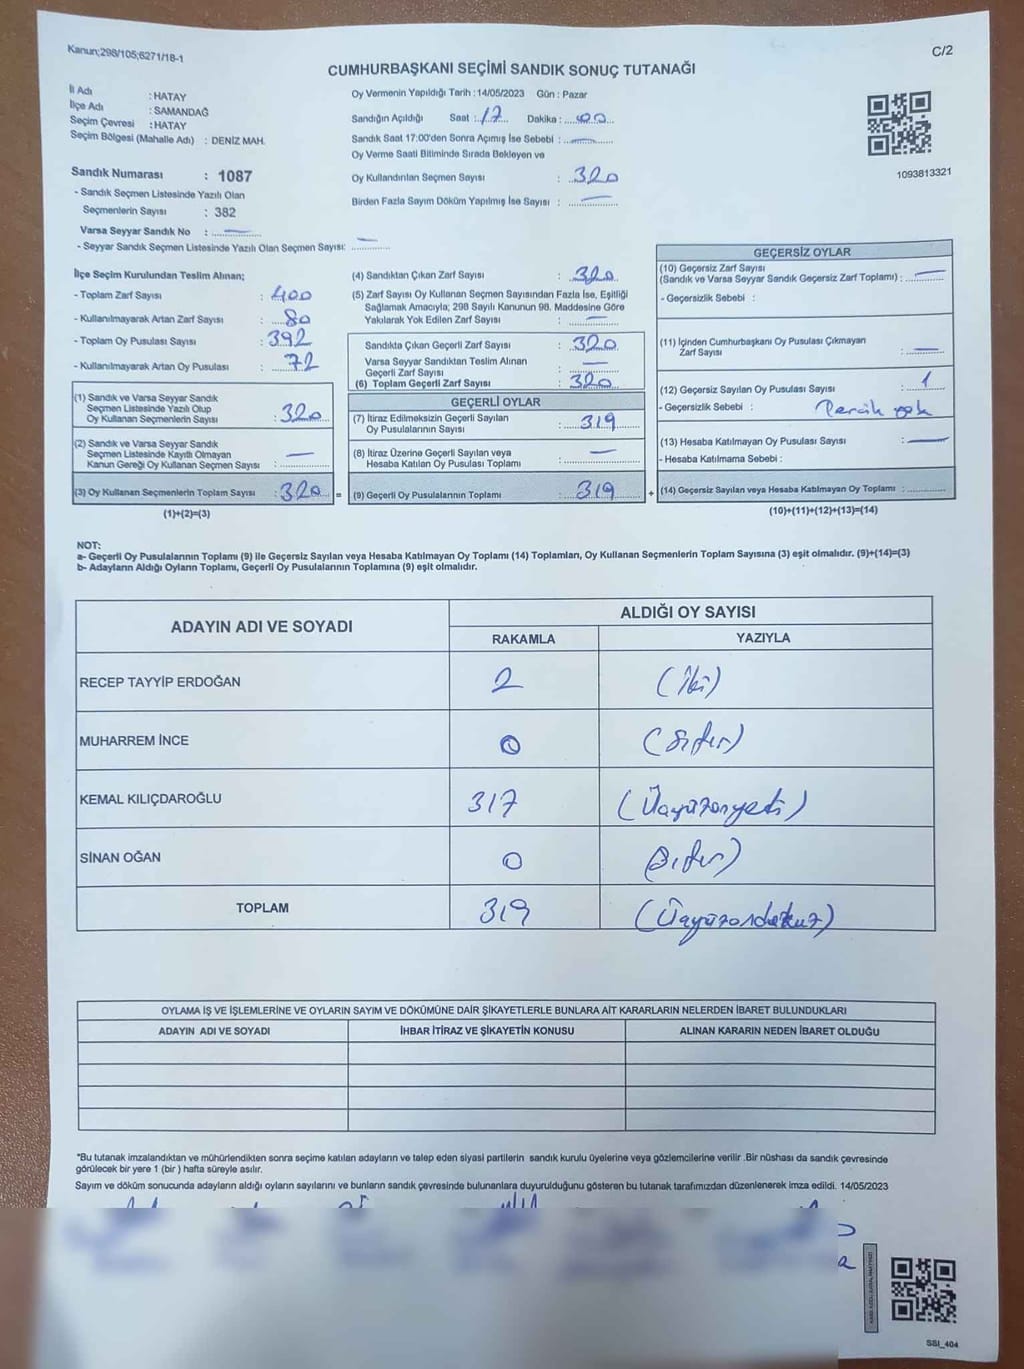 Kanun;298/105;6271/18-1
C/2
CUMHURBAŞKANI SEÇİMİ SANDIK SONUÇ TUTANAĞI
İl Adı : HATAY
İlçe Adı : SAMANDAĞ
Seçim Çevresi : HATAY
Seçim Bölgesi (Mahalle Adı) : DENİZ MAH.
Sandık Numarası : 1087
- Sandık Seçmen Listesinde Yazılı Olan
Seçmenlerin Sayısı : 382
Varsa Seyyar Sandık No : —
- Seyyar Sandık Seçmen Listesinde Yazılı Olan Seçmen Sayısı: —
Oy Vermenin Yapıldığı Tarih : 14/05/2023 Gün : Pazar
Sandığın Açıldığı Saat : 17 Dakika : 00
Sandık Saat 17:00'den Sonra Açımış İse Sebebi : —
Oy Verme Saati Bitiminde Sırada Bekleyen ve
Oy Kullandırılan Seçmen Sayısı : 320
Birden Fazla Sayım Döküm Yapılmış İse Sayısı : —
1093813321
İlçe Seçim Kurulundan Teslim Alınan;
- Toplam Zarf Sayısı : 400
- Kullanılmayarak Artan Zarf Sayısı : 80
- Toplam Oy Pusulası Sayısı : 392
- Kullanılmayarak Artan Oy Pusulası : 72
(1) Sandık ve Varsa Seyyar Sandık
Seçmen Listesinde Yazılı Olup
Oy Kullanan Seçmenlerin Sayısı : 320
(2) Sandık ve Varsa Seyyar Sandık
Seçmen Listesinde Kayıtlı Olmayan
Kanun Gereği Oy Kullanan Seçmen Sayısı : —
(3) Oy Kullanan Seçmenlerin Toplam Sayısı : 320 =
(1)+(2)=(3)
(4) Sandıktan Çıkan Zarf Sayısı : 320
(5) Zarf Sayısı Oy Kullanan Seçmen Sayısından Fazla İse, Eşitliği
Sağlamak Amacıyla; 298 Sayılı Kanunun 98. Maddesine Göre
Yakılarak Yok Edilen Zarf Sayısı : —
Sandıkta Çıkan Geçerli Zarf Sayısı : 320
Varsa Seyyar Sandıktan Teslim Alınan
Geçerli Zarf Sayısı : —
(6) Toplam Geçerli Zarf Sayısı : 320
GEÇERLİ OYLAR
(7) İtiraz Edilmeksizin Geçerli Sayılan
Oy Pusulalarının Sayısı : 319
(8) İtiraz Üzerine Geçerli Sayılan veya
Hesaba Katılan Oy Pusulası Toplamı : —
(9) Geçerli Oy Pusulalarının Toplamı : 319 +
GEÇERSİZ OYLAR
(10) Geçersiz Zarf Sayısı
(Sandık ve Varsa Seyyar Sandık Geçersiz Zarf Toplamı) : —
- Geçersizlik Sebebi :
(11) İçinden Cumhurbaşkanı Oy Pusulası Çıkmayan
Zarf Sayısı : —
(12) Geçersiz Sayılan Oy Pusulası Sayısı : 1
- Geçersizlik Sebebi : Tercih yok
(13) Hesaba Katılmayan Oy Pusulası Sayısı : —
- Hesaba Katılmama Sebebi :
(14) Geçersiz Sayılan veya Hesaba Katılmayan Oy Toplamı :
(10)+(11)+(12)+(13)=(14)
NOT:
a- Geçerli Oy Pusulalarının Toplamı (9) ile Geçersiz Sayılan veya Hesaba Katılmayan Oy Toplamı (14) Toplamları, Oy Kullanan Seçmenlerin Toplam Sayısına (3) eşit olmalıdır. (9)+(14)=(3)
b- Adayların Aldığı Oyların Toplamı, Geçerli Oy Pusulalarının Toplamına (9) eşit olmalıdır.
ADAYIN ADI VE SOYADI
ALDIĞI OY SAYISI
RAKAMLA YAZIYLA
RECEP TAYYİP ERDOĞAN 2 (İki)
MUHARREM İNCE 0 (Sıfır)
KEMAL KILIÇDAROĞLU 317 (Üçyüzonyedi)
SİNAN OĞAN 0 (Sıfır)
TOPLAM 319 (Üçyüzondokuz)
OYLAMA İŞ VE İŞLEMLERİNE VE OYLARIN SAYIM VE DÖKÜMÜNE DAİR ŞİKAYETLERLE BUNLARA AİT KARARLARIN NELERDEN İBARET BULUNDUKLARI
ADAYIN ADI VE SOYADI İHBAR İTİRAZ VE ŞİKAYETİN KONUSU ALINAN KARARIN NEDEN İBARET OLDUĞU
*Bu tutanak imzalandıktan ve mühürlendikten sonra seçime katılan adayların ve talep eden siyasi partilerin sandık kurulu üyelerine veya gözlemcilerine verilir .Bir nüshası da sandık çevresinde
görülecek bir yere 1 (bir ) hafta süreyle asılır.
Sayım ve döküm sonucunda adayların aldığı oyların sayılarını ve bunların sandık çevresinde bulunanlara duyurulduğunu gösteren bu tutanak tarafımızdan düzenlenerek imza edildi. 14/05/2023
SSI_404